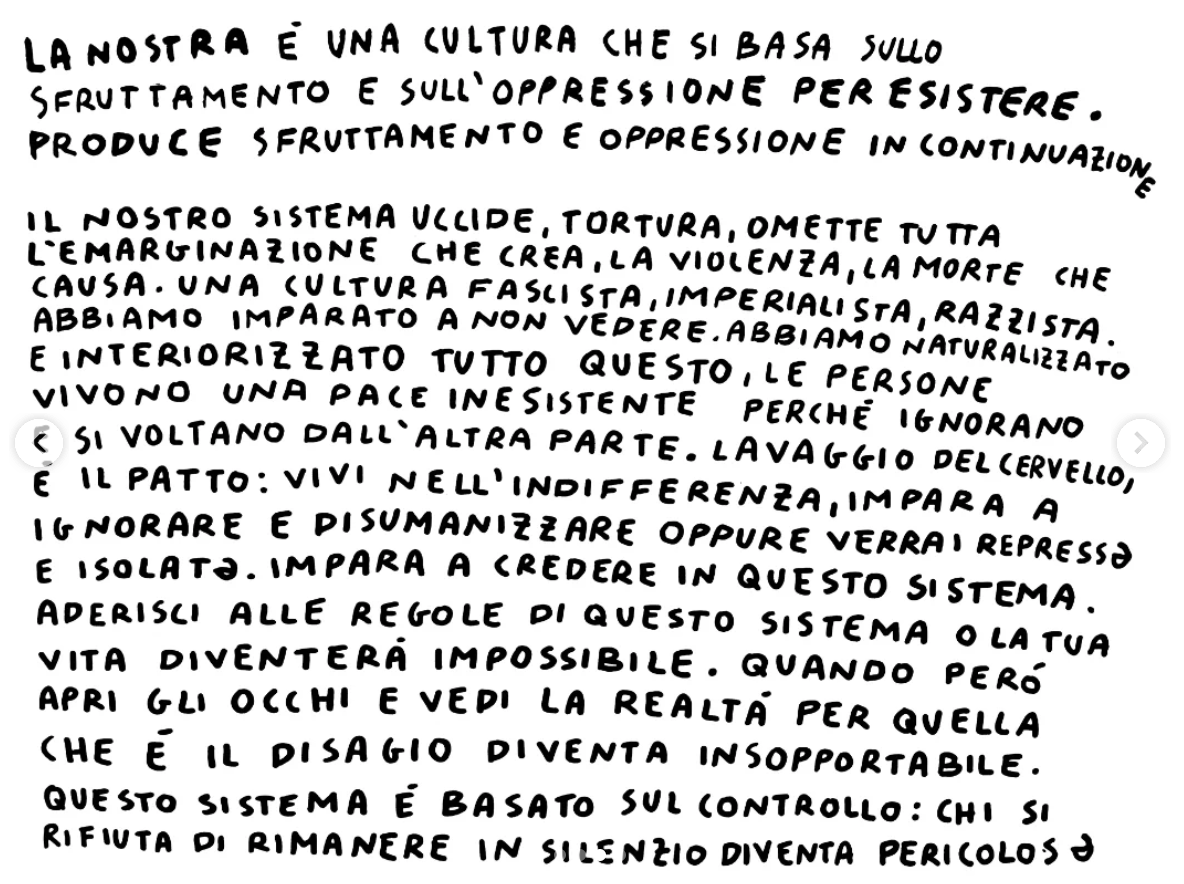 LA NOSTRA É UNA CULTURA CHE SI BASA SULLO
SFRUTTAMENTO E SULL'OPPRESSIONE PER ESISTERE.
PRODUCE SFRUTTAMENTO E OPPRESSIONE IN CONTINUAZIONE
IL NOSTRO SISTEMA UCCIDE, TORTURA, OMETTE TUTTA
L'EMARGINAZIONE CHE CREA, LA VIOLENZA, LA MORTE CHE
CAUSA. UNA CULTURA FASCISTA, IMPERIALISTA, RAZZISTA.
ABBIAMO IMPARATO A NON VEDERE. ABBIAMO NATURALIZZATO
E INTERIORIZZATO TUTTO QUESTO, LE PERSONE
VIVONO UNA PACE INESISTENTE PERCHÉ IGNORANO
E SI VOLTANO DALL'ALTRA PARTE. LAVAGGIO DEL CERVELLO,
É IL PATTO: VIVI NELL'INDIFFERENZA, IMPARA A
IGNORARE E DISUMANIZZARE OPPURE VERRAI REPRESSƏ
E ISOLATƏ. IMPARA A CREDERE IN QUESTO SISTEMA.
ADERISCI ALLE REGOLE DI QUESTO SISTEMA O LA TUA
VITA DIVENTERÁ IMPOSSIBILE. QUANDO PERÓ
APRI GLI OCCHI E VEDI LA REALTÁ PER QUELLA
CHE É IL DISAGIO DIVENTA INSOPPORTABILE.
QUESTO SISTEMA É BASATO SUL CONTROLLO: CHI SI
RIFIUTA DI RIMANERE IN SILENZIO DIVENTA PERICOLOSƏ